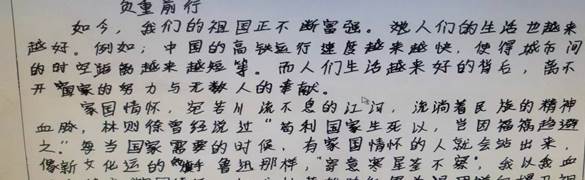 负重前行
如今，我们的祖国正不断富强。人们的生活也越来
越好。例如，中国的高铁运行速度越来越快，使得城市间
的时空距离越来越短等。而人们生活越来好的背后，离不
开国家的努力与无数人的奉献。
家国情怀，宛若川流不息的江河，流淌着民族的精神
血脉，林则徐曾经说过“苟利国家生死以，岂因福祸趋避
之”每当国家需要的时候，有家国情怀的人就会站出来，
像新文化运的旗手鲁迅那样，“寄意寒星荃不察”，我以我血